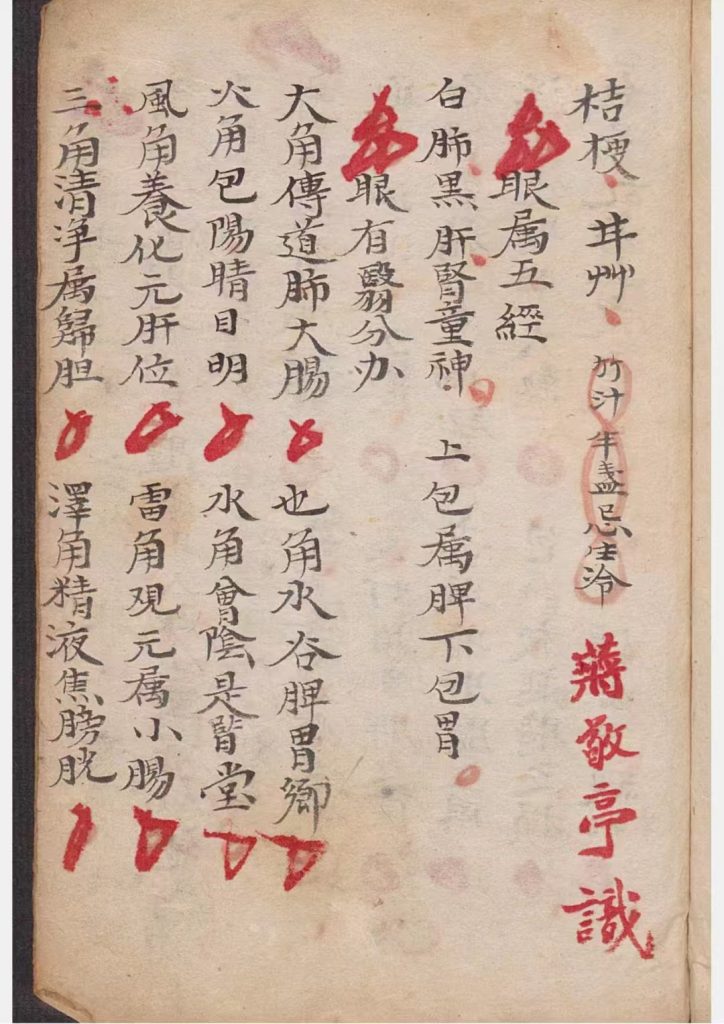 桔梗 甘艸 竹汁半盏忌生冷 蔣敬亭識
眼属五經
白肺黒肝腎童神 上包属脾下包胃
眼有翳分办
大角傳道肺大腸 也角水谷脾胃鄉
火角包陽睛目明 水角會陰是腎堂
風角養化元肝位 雷角观元属小腸
三角清净属歸胆 澤角精液焦膀胱